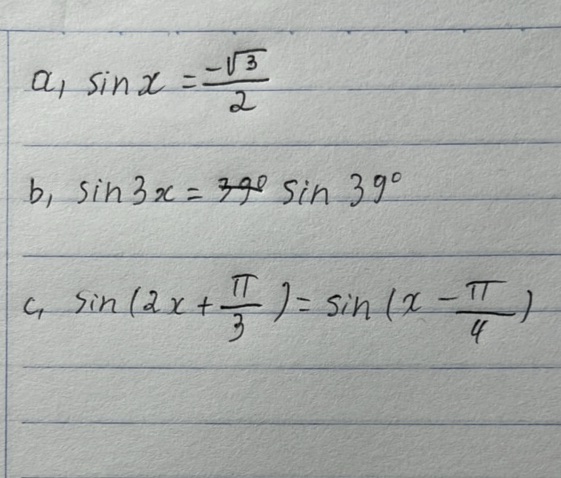 a, sin x = -√3/2
b, sin 3x = ~~39°~~ sin 39°
c, sin (2x + π/3) = sin (x - π/4)